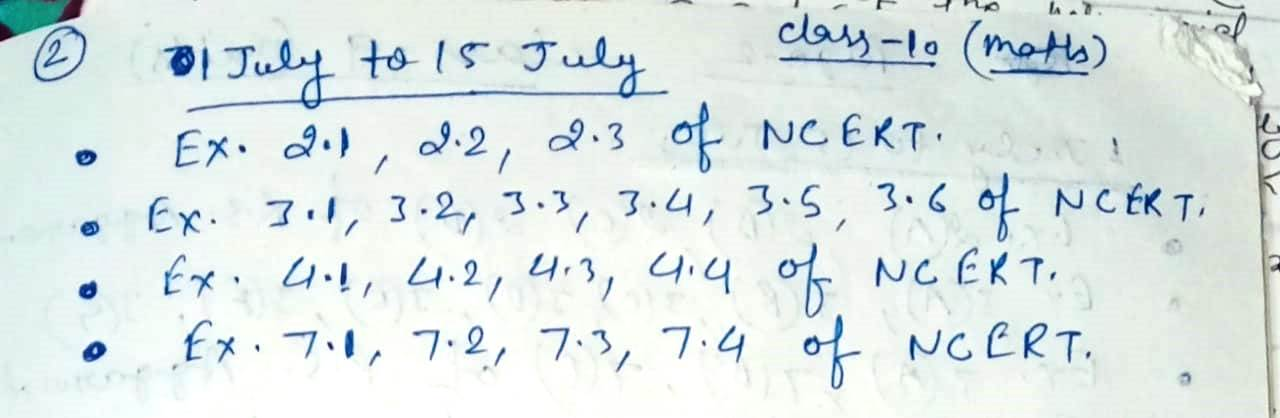 ② 01 July to 15 July class-10 (maths)
• Ex. 2.1, 2.2, 2.3 of NCERT.
• Ex. 3.1, 3.2, 3.3, 3.4, 3.5, 3.6 of NCERT.
• Ex. 4.1, 4.2, 4.3, 4.4 of NCERT.
• Ex. 7.1, 7.2, 7.3, 7.4 of NCERT.